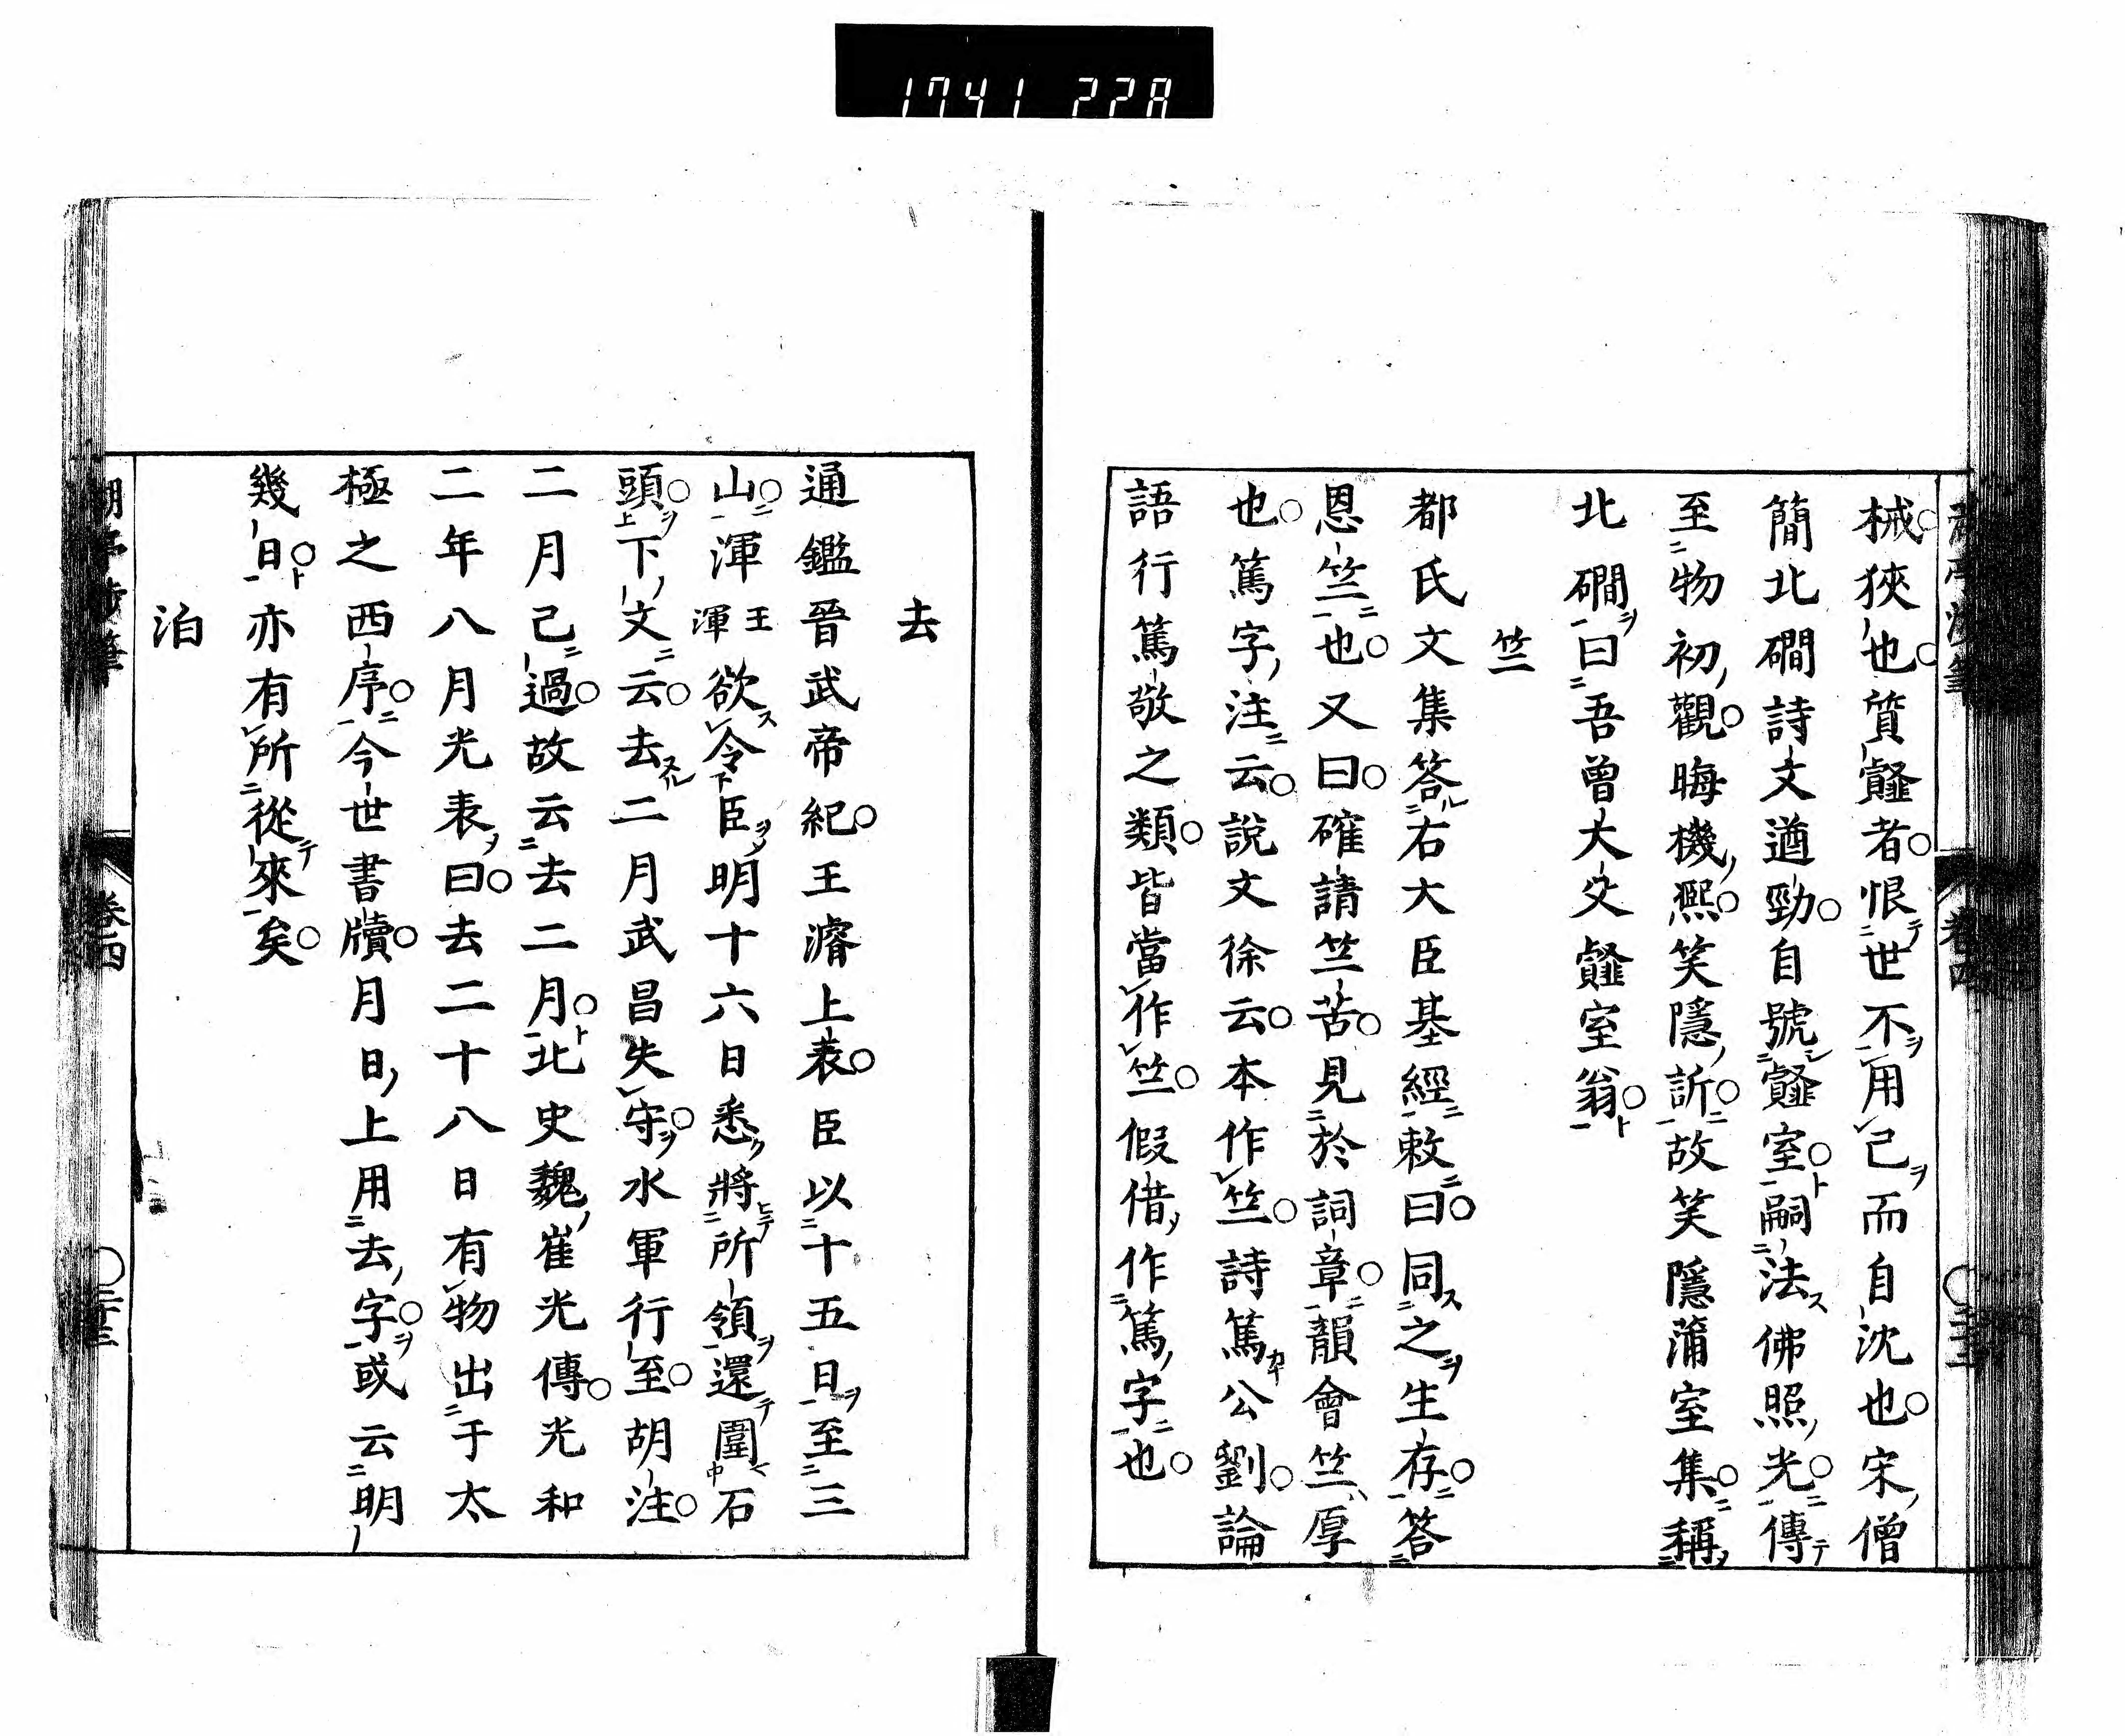 1741 228
械狹也質韰者恨世不用己而自沈也宋僧
簡北磵詩文遒勁自號韰室嗣法佛照光傳
至物初觀晦機熙笑隱訢故笑隱蒲室集稱
北磵曰吾曾大父韰室翁
竺
都氏文集答右大臣基經敕曰同之生存答
恩竺也又曰確請竺苦見於詞章韻會竺厚
也篤字注云說文徐云本作竺詩篤公劉論
語行篤敬之類皆當作竺假借作篤字也
去
通鑑晉武帝紀王濬上表臣以十五日至三
山渾王渾欲令臣明十六日悉將所領還圍石
頭下文云去二月武昌失守水軍行至胡注
二月己過故云去二月北史魏崔光傳光和
二年八月光表曰去二十八日有物出于太
極之西序今世書牘月日上用去字或云明
幾日亦有所從來矣
泊
卷四